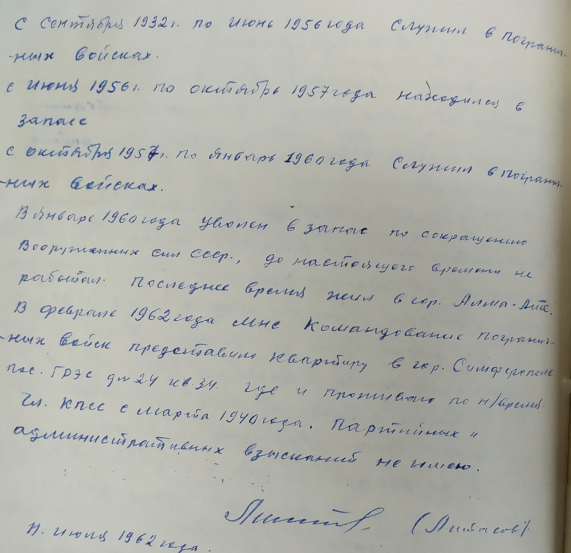 С сентября 1932г. по июнь 1956 года служил в погранич-
-ных войсках.
с июня 1956г. по октябрь 1957 года находился в
запасе
с октября 1957г. по январь 1960 года служил в погранич-
-ных войсках.
В январе 1960 года уволен в запас по сокращению
Вооруженных сил СССР., до настоящего времени не
работал. Последнее время жил в гор. Алма-Ате.
В феврале 1962 года мне командование погранич-
-ных войск представило квартиру в гор. Симферополе
пос. ГРЭС дм 24 кв 34 где и проживаю по н/время.
Чл. КПСС с марта 1940 года. Партийных и
административных взысканий не имею.
(Литасов)
11. июля 1962 года.